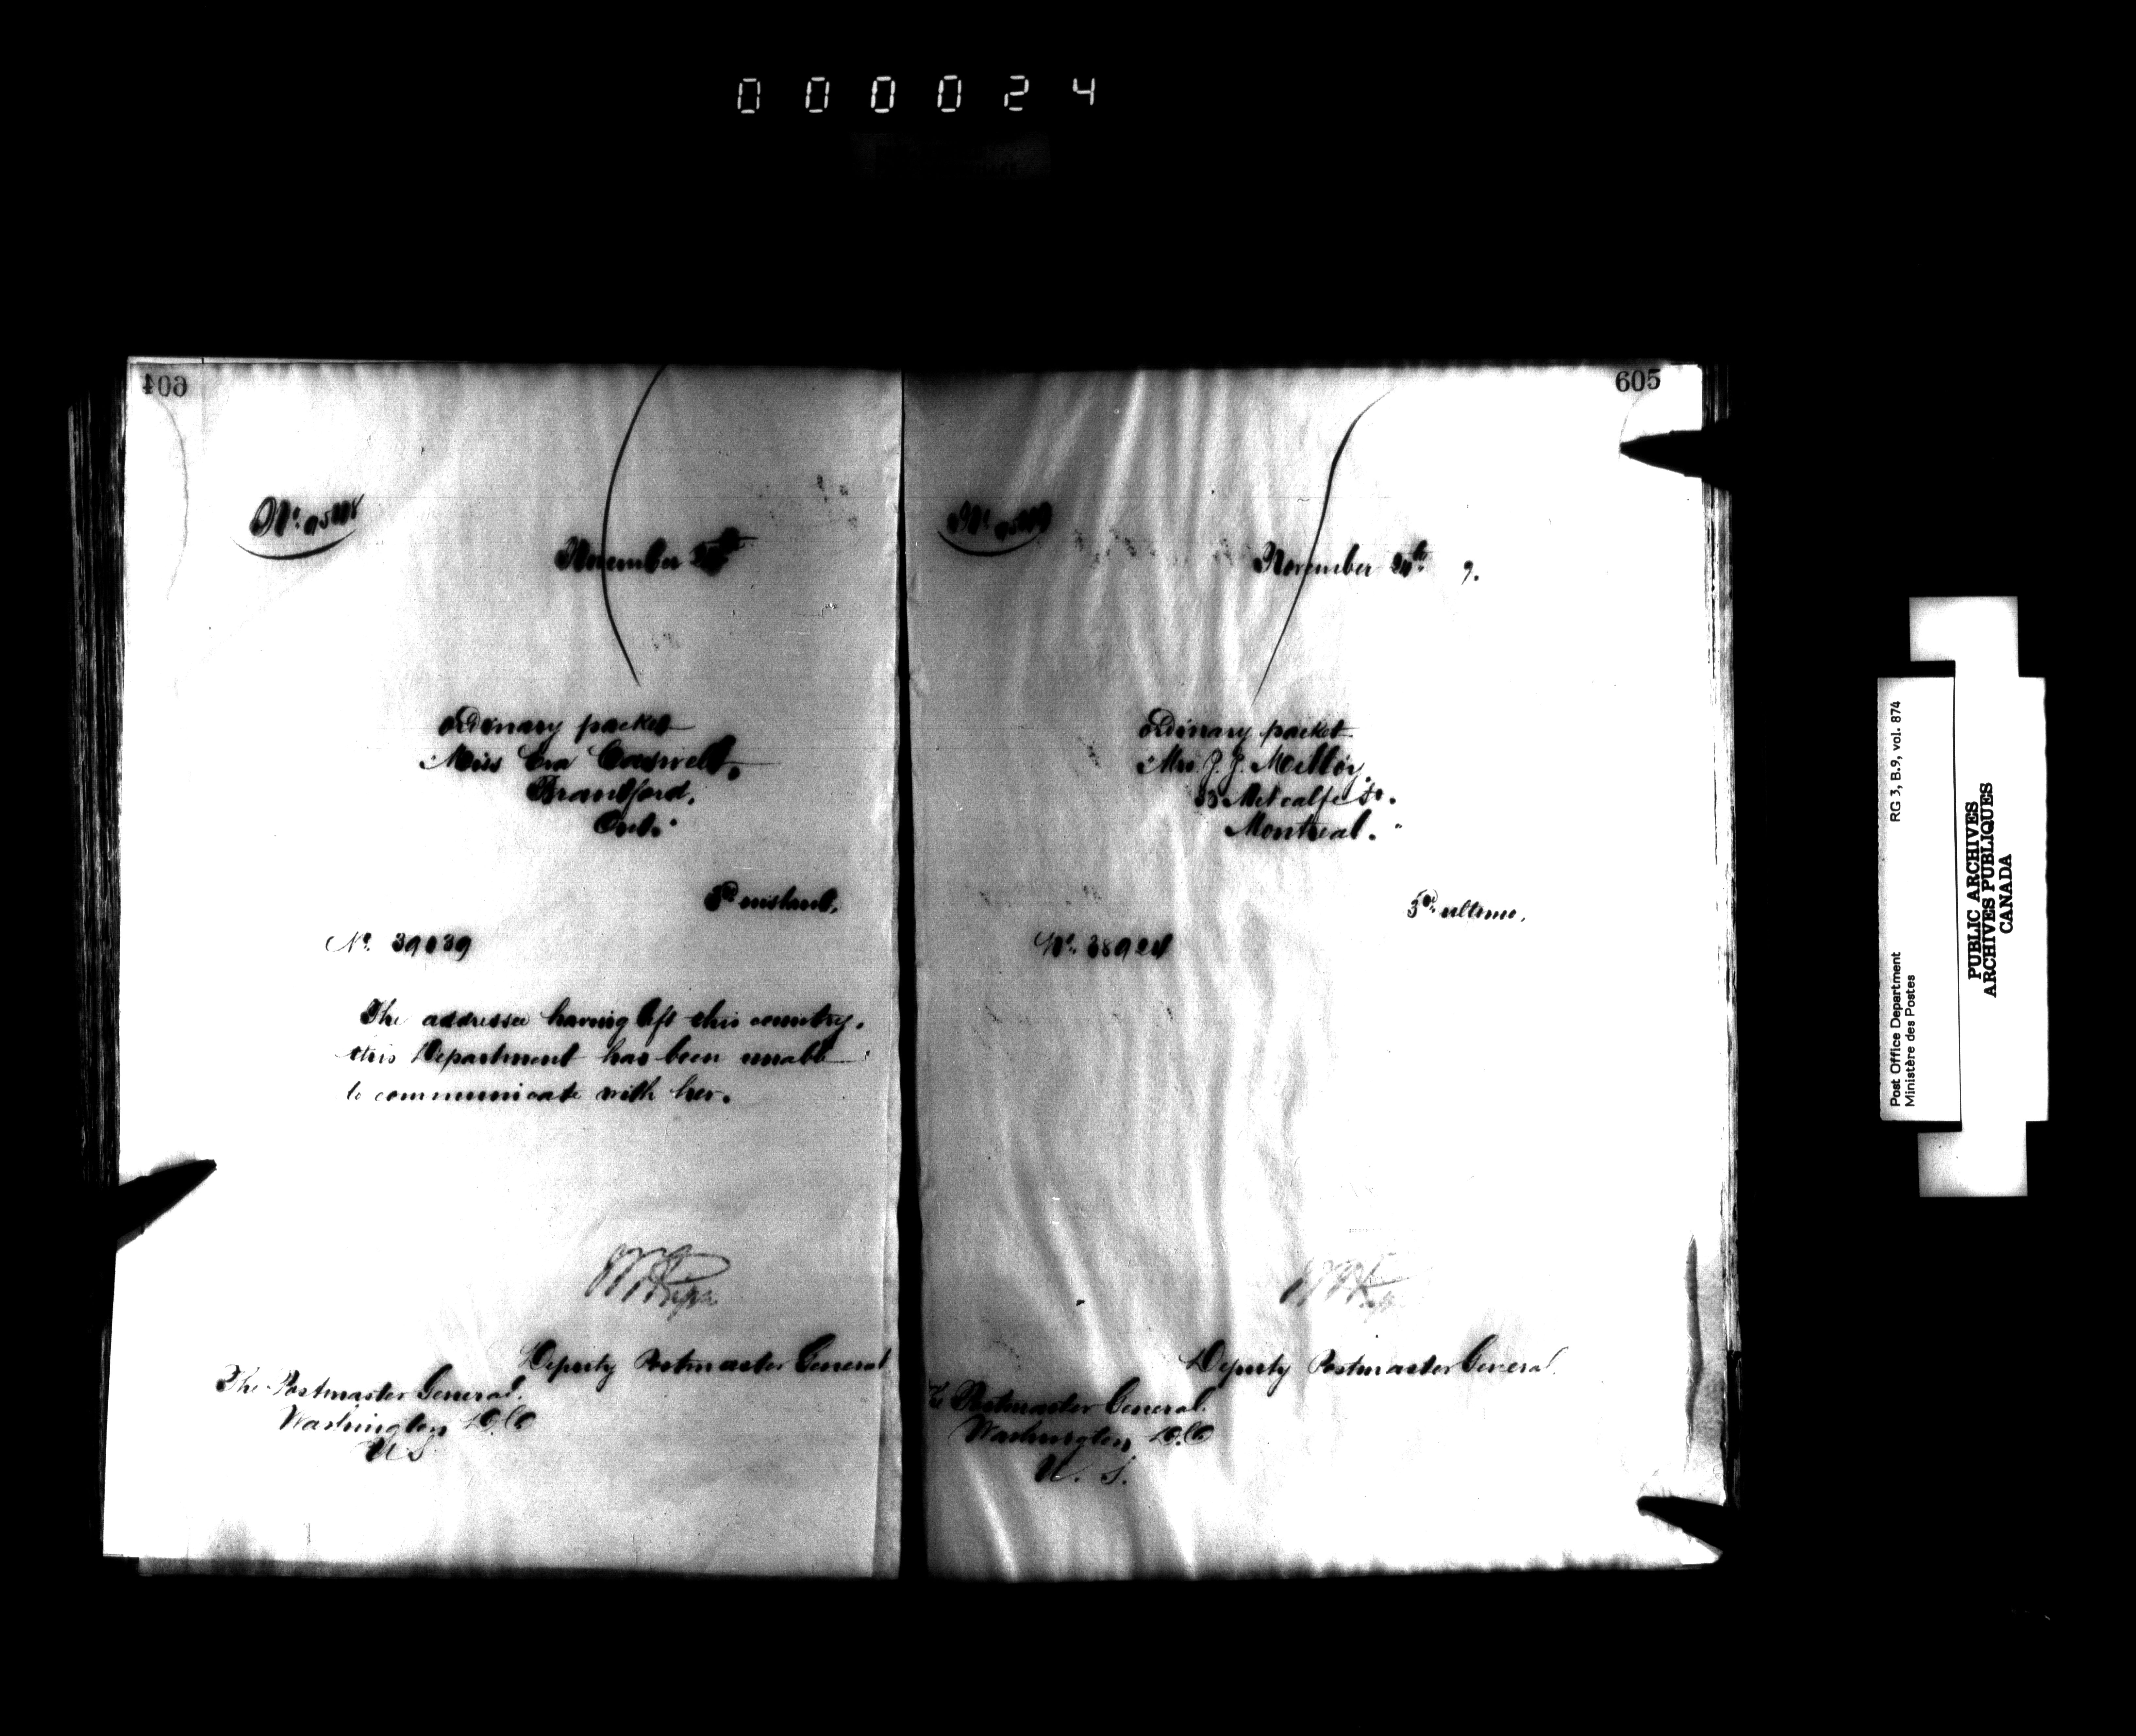 000024
604
November
ordinary packet
Miss Eva Caswell,
Brantford,
Ont.
3rd instant,
No. 39039
The addressee having left this country,
this Department has been unable
to communicate with her.
Deputy Postmaster General
The Postmaster General,
Washington D.C.
U S
605
November 24th 9.
ordinary packet
Mrs J. J. Milloy,
Metcalfe St.
Montreal.
3rd ultimo,
No. 38924
Deputy Postmaster General.
The Postmaster General.
Washington D.C.
U. S.
Post Office Department
Ministère des Postes
RG 3, B.9, vol. 874
PUBLIC ARCHIVES
ARCHIVES PUBLIQUES
CANADA